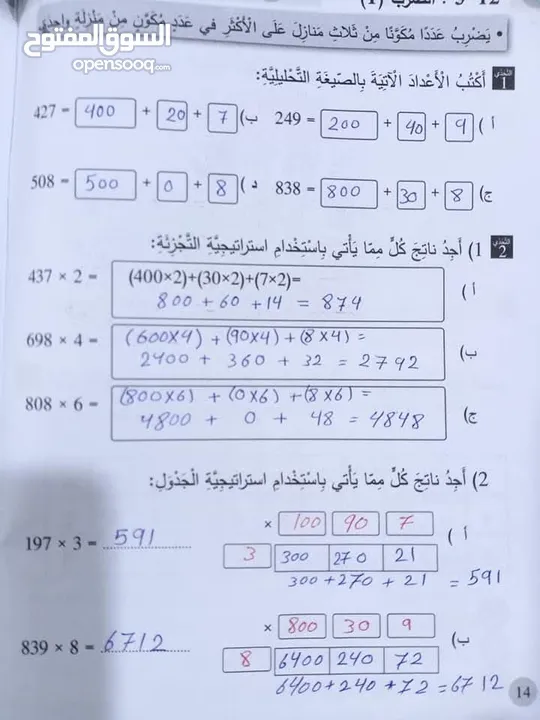 السوق المفتوح
opensooq.com
• يَضْرِبُ عَدَدًا مُكَوَّنًا مِنْ ثَلاثِ مَنازِلَ عَلَى الْأَكْثَرِ في عَدَدٍ مُكَوَّنٍ مِنْ مَنْزِلَةٍ واحِدَةٍ
التحدّي 1 أَكْتُبُ الْأَعْدادَ الْآتِيَةَ بِالصّيغَةِ التَّحْليلِيَّةِ:
أ ) 249 = 200 + 40 + 9
ب) 427 = 400 + 20 + 7
ج) 838 = 800 + 30 + 8
د ) 508 = 500 + 0 + 8
التحدّي 2 1) أَجِدُ ناتِجَ كُلٍّ مِمّا يَأْتي بِاسْتِخْدامِ استراتيجِيَّةِ التَّجْزِئَةِ:
أ ) 437 × 2 = (400×2)+(30×2)+(7×2)=
800 + 60 + 14 = 874
ب) 698 × 4 = (600×4) + (90×4) + (8×4) =
2400 + 360 + 32 = 2792
ج) 808 × 6 = (800×6) + (0×6) + (8×6) =
4800 + 0 + 48 = 4848
2) أَجِدُ ناتِجَ كُلٍّ مِمّا يَأْتي بِاسْتِخْدامِ استراتيجِيَّةِ الْجَدْوَلِ:
أ ) × 100 90 7
197 × 3 = 591
3 300 270 21
300 + 270 + 21 = 591
ب) × 800 30 9
839 × 8 = 6712
8 6400 240 72
6400 + 240 + 72 = 6712
14